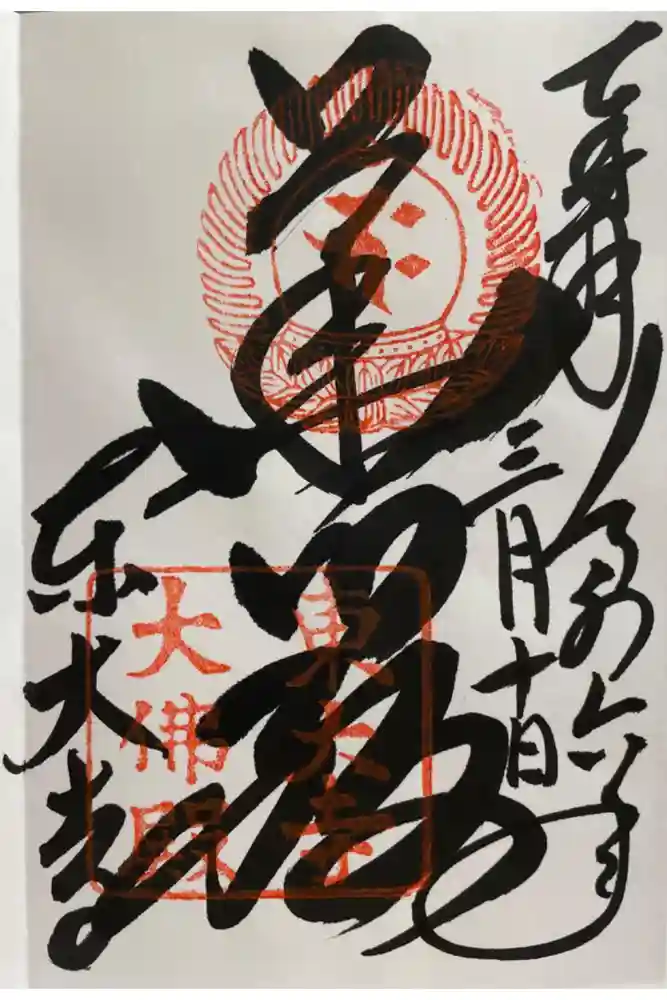 奉拝 令和六年
三月十日
華厳
東大寺
東大寺
大佛殿